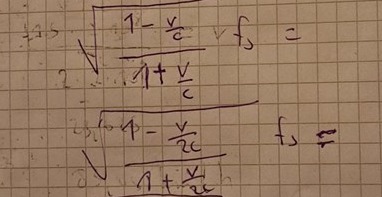 √((1 - v/c)/(1 + v/c)) fs =
√((1 - v/2c)/(1 + v/2c)) fs =